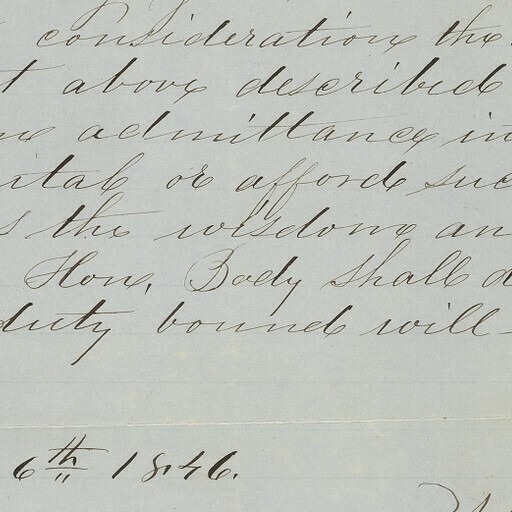 consideration the
t above described
admittance in
ital or afford suc
s the wisdom an
Hon. Body shall d
duty bound will
6th 1846.